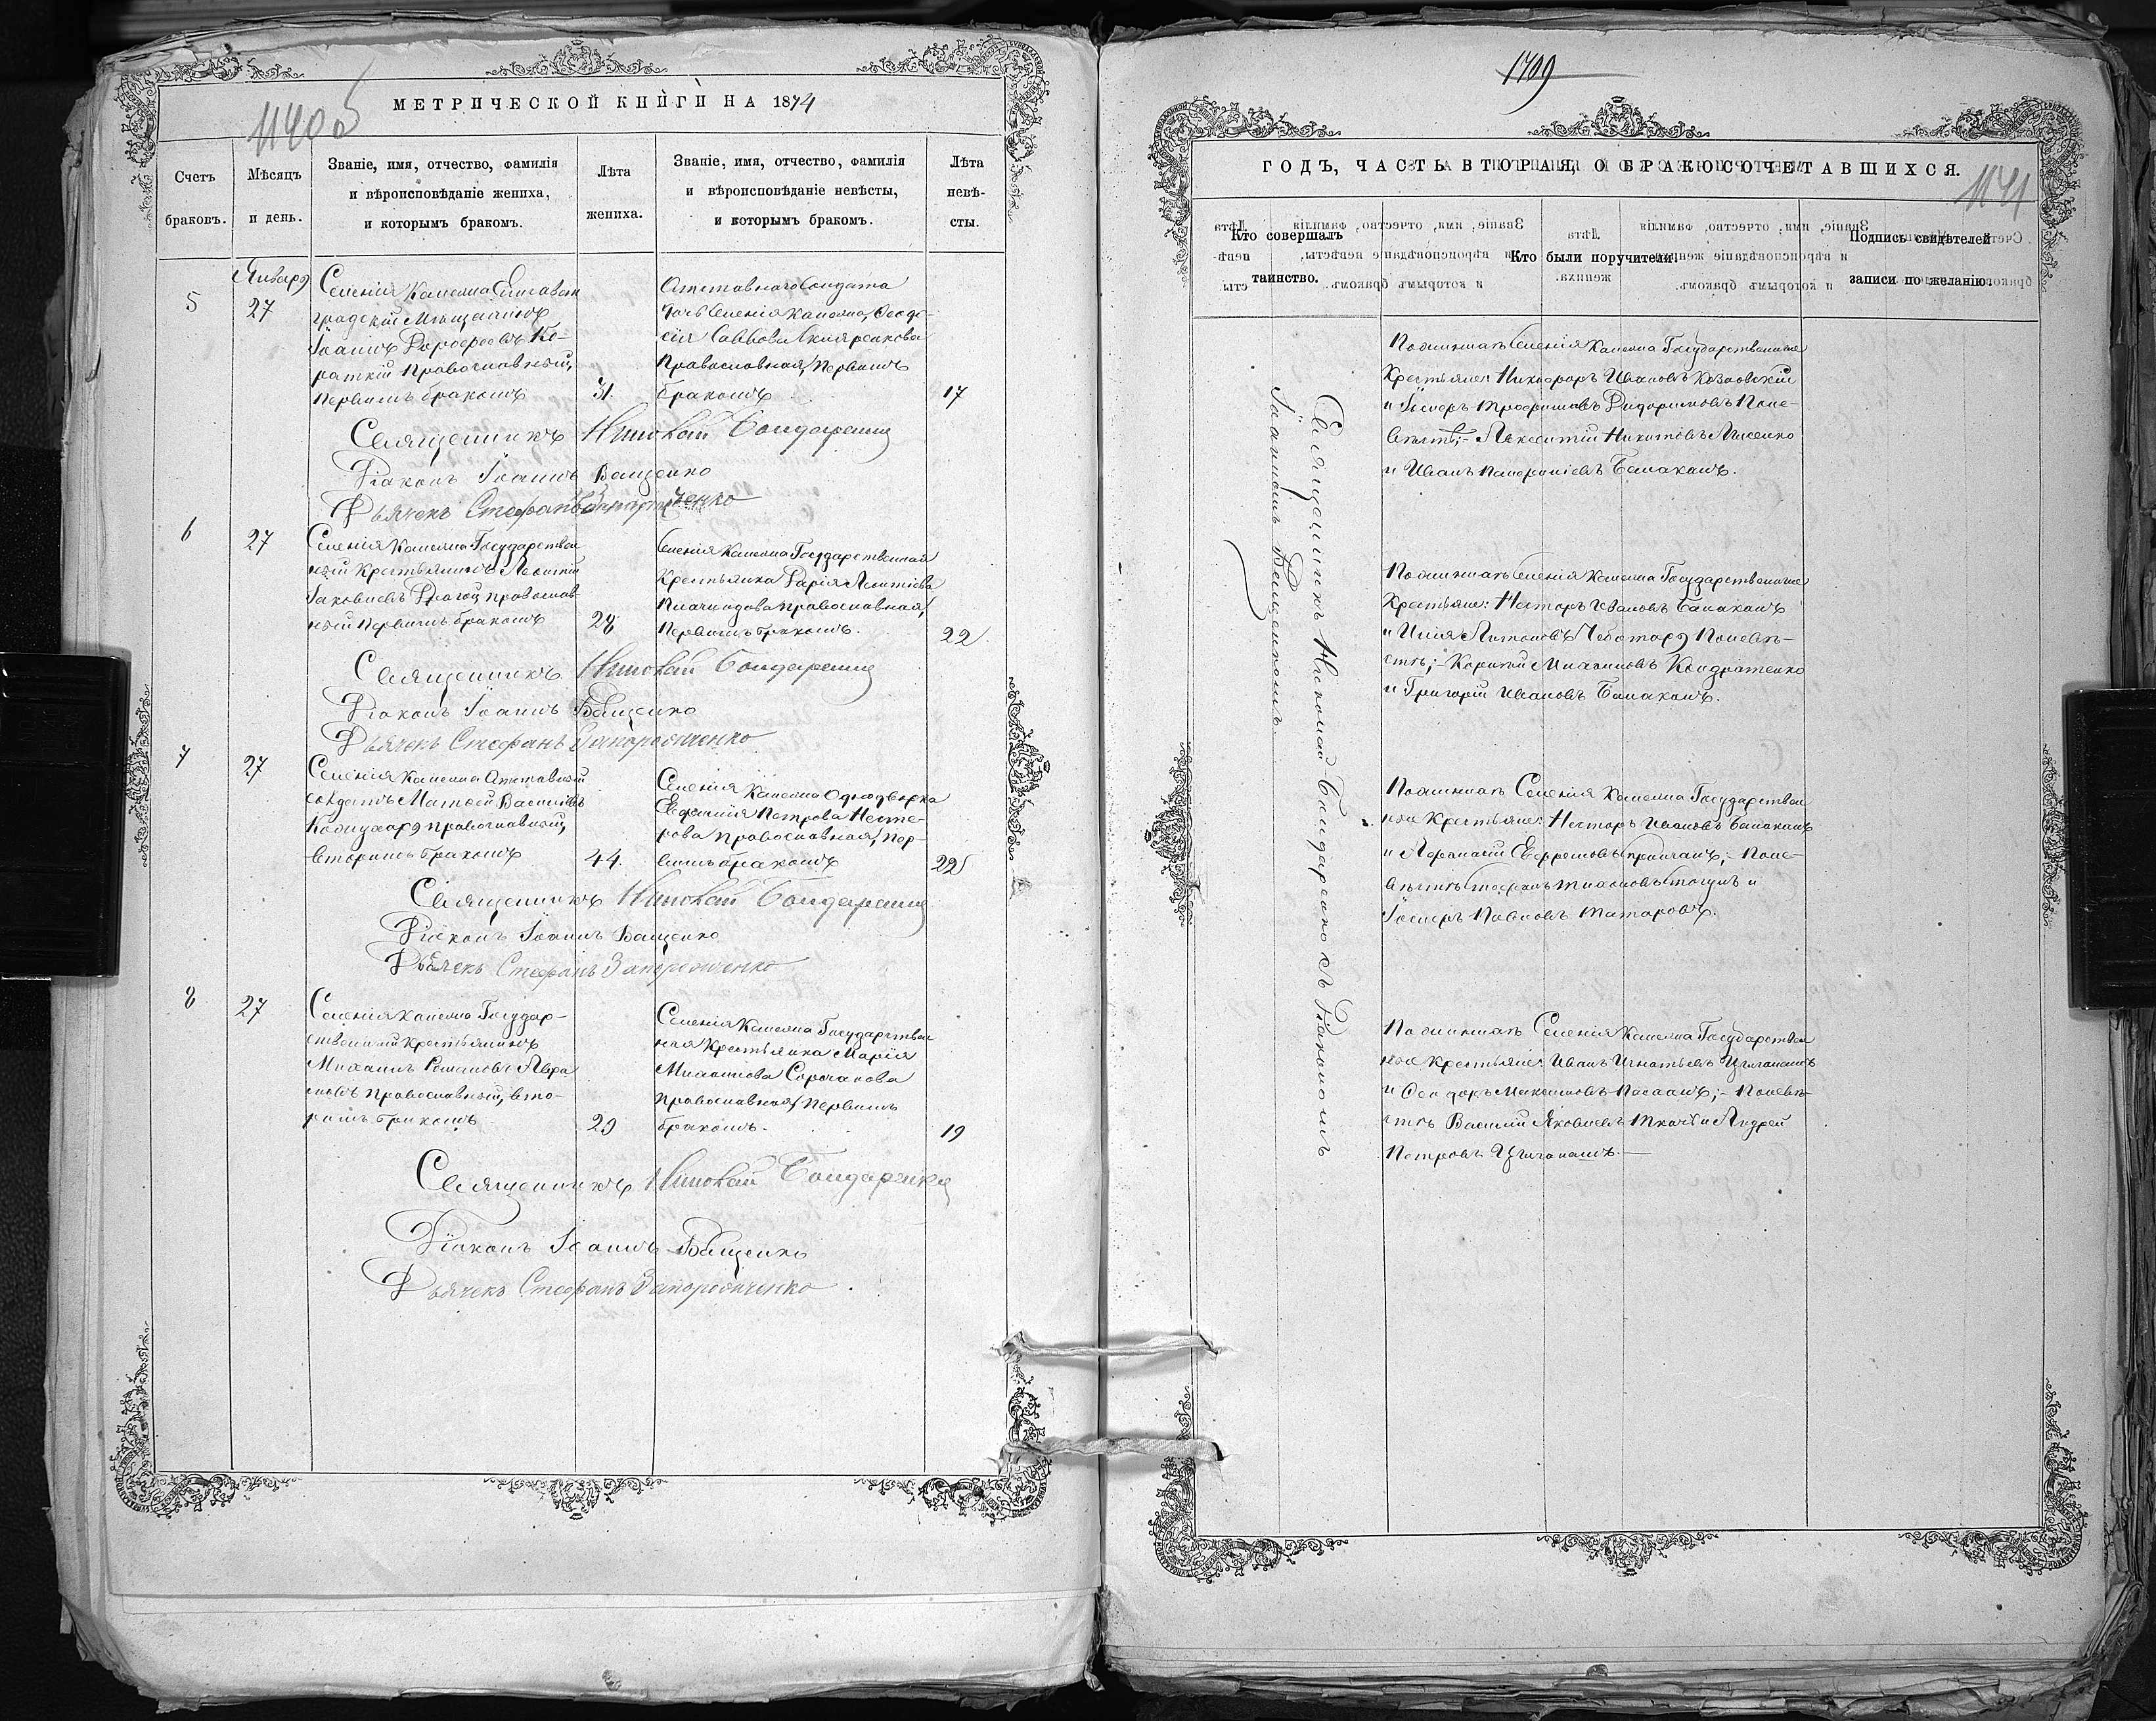 МЕТРИЧЕСКОЙ КНИГИ НА 1874
1140 об
Счетъ браковъ.
Мѣсяцъ и день.
Званіе, имя, отчество, фамилія
и вѣроисповѣданіе жениха,
и которымъ бракомъ.
Лѣта жениха.
Званіе, имя, отчество, фамилія
и вѣроисповѣданіе невѣсты,
и которымъ бракомъ.
Лѣта невѣ-
сты.
Января
5
27
Селенія Камелиа Елисавет
градскій Мѣщанинъ
Іоаннъ
раткій Православный,
Первымъ бракомъ
31.
Отставнаго Солдата
дочь Селенія Камелиа, Феодо-
сія Саввова
Православная, Первымъ
бракомъ
17
Священникъ Николай Бондаренко
Діаконъ Іоаннъ Ващенко
Дьячекъ Стефанъ Запорожченко
6
27
Селенія Камелиа Государствен
ный Крестьянинъ Леонтій
Іаковлевъ православ
ный Первымъ бракомъ
28
Селенія Камелиа Государственная
Крестьянка Дарія Леонтіева
православная,
Первымъ бракомъ.
22
Священникъ Николай Бондаренко
Діаконъ Іоаннъ Ващенко
Дьячекъ Стефанъ Запорожченко
7
27
Селенія Камелиа Отставной
солдатъ Матвей Василіевъ
православный,
вторымъ бракомъ
44.
Селенія Камелиа Однодворка
Евфимія Петрова Несте-
рова православная, Пер-
вымъ бракомъ
22
Священникъ Николай Бондаренко
Діаконъ Іоаннъ Ващенко
Дьячекъ Стефанъ Запорожченко
8
27
Селенія Камелиа Государ-
ственный Крестьянинъ
Михаилъ Романовъ Авра
мовъ Православный, вто-
рымъ бракомъ
29
Селенія Камелиа Государствен
ная Крестьянка Марія
Михаилова Сорочанова
Православная, Первымъ
бракомъ.
19
Священникъ Николай Бондаренко
Діаконъ Іоаннъ Ващенко
Дьячекъ Стефанъ Запорожченко
1709
ГОДЪ, ЧАСТЬ ВТОРАЯ, О БРАКОСОЧЕТАВШИХСЯ.
1141
Кто совершалъ
таинство.
Кто были поручители.
Подпись свидѣтелей
записи по желанію.
Священникъ Николай Бондаренко съ Діакономъ
Іоанномъ Ващенкомъ
По женихѣ Селенія Камелиа Государственные
Крестьяне: Никифоръ Ивановъ Козловскій
и Іосифъ Трофимовъ По не-
вѣстѣ;- Никитовъ Лисенко
и Иванъ Балабанъ.
По женихѣ Селенія Камелиа Государственные
Крестьяне: Несторъ Ивановъ Балабанъ
и Илія Антоновъ Чеботарь По невѣ-
стѣ;- Корнилій Михаиловъ Кондратенко
и Григорій Ивановъ Балабанъ.
По женихѣ Селенія Камелиа Государствен
ные Крестьяне: Несторъ Ивановъ Балабанъ
и Афанасій Ефремовъ;- По не-
вѣстѣ Стефанъ и
Іосифъ Павловъ Татаровъ.
По женихѣ Селенія Камелиа Государствен
ные Крестьяне: Иванъ Игнатьевъ
и Феодоръ Максимовъ;- По невѣ-
стѣ Василій Яковлевъ Ткачъ и Андрей
Петровъ